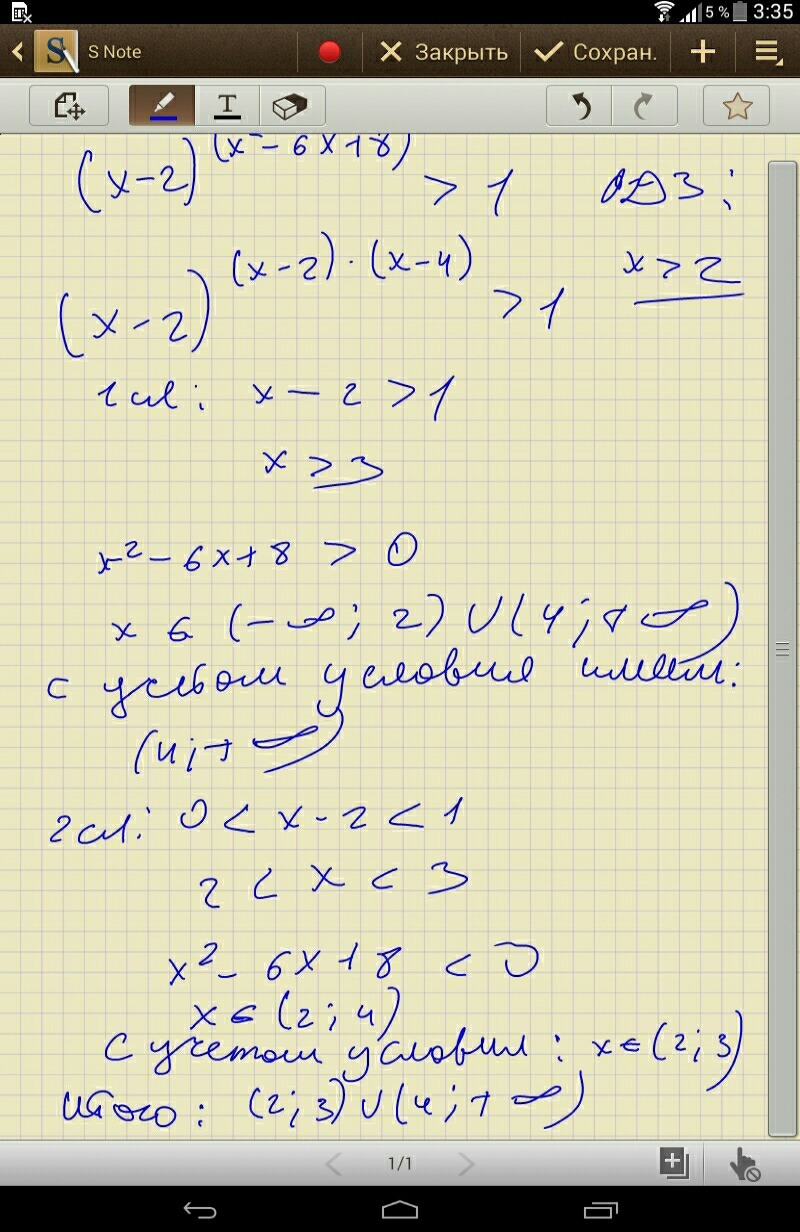 5 % 3:35
S Note Закрыть Сохран.
T
(x-2)^(x²-6x+8) > 1 ОДЗ:
(x-2)^(x-2)·(x-4) > 1 x>2
1 сл: x-2>1
x>3
x²-6x+8 > 0
x ∈ (-∞; 2) ∪ (4; +∞)
с учетом условия имеем:
(4; +∞)
2 сл: 0 < x-2 < 1
2 < x < 3
x²-6x+8 < 0
x ∈ (2; 4)
с учетом условия: x ∈ (2; 3)
итого: (2; 3) ∪ (4; +∞)
1/1